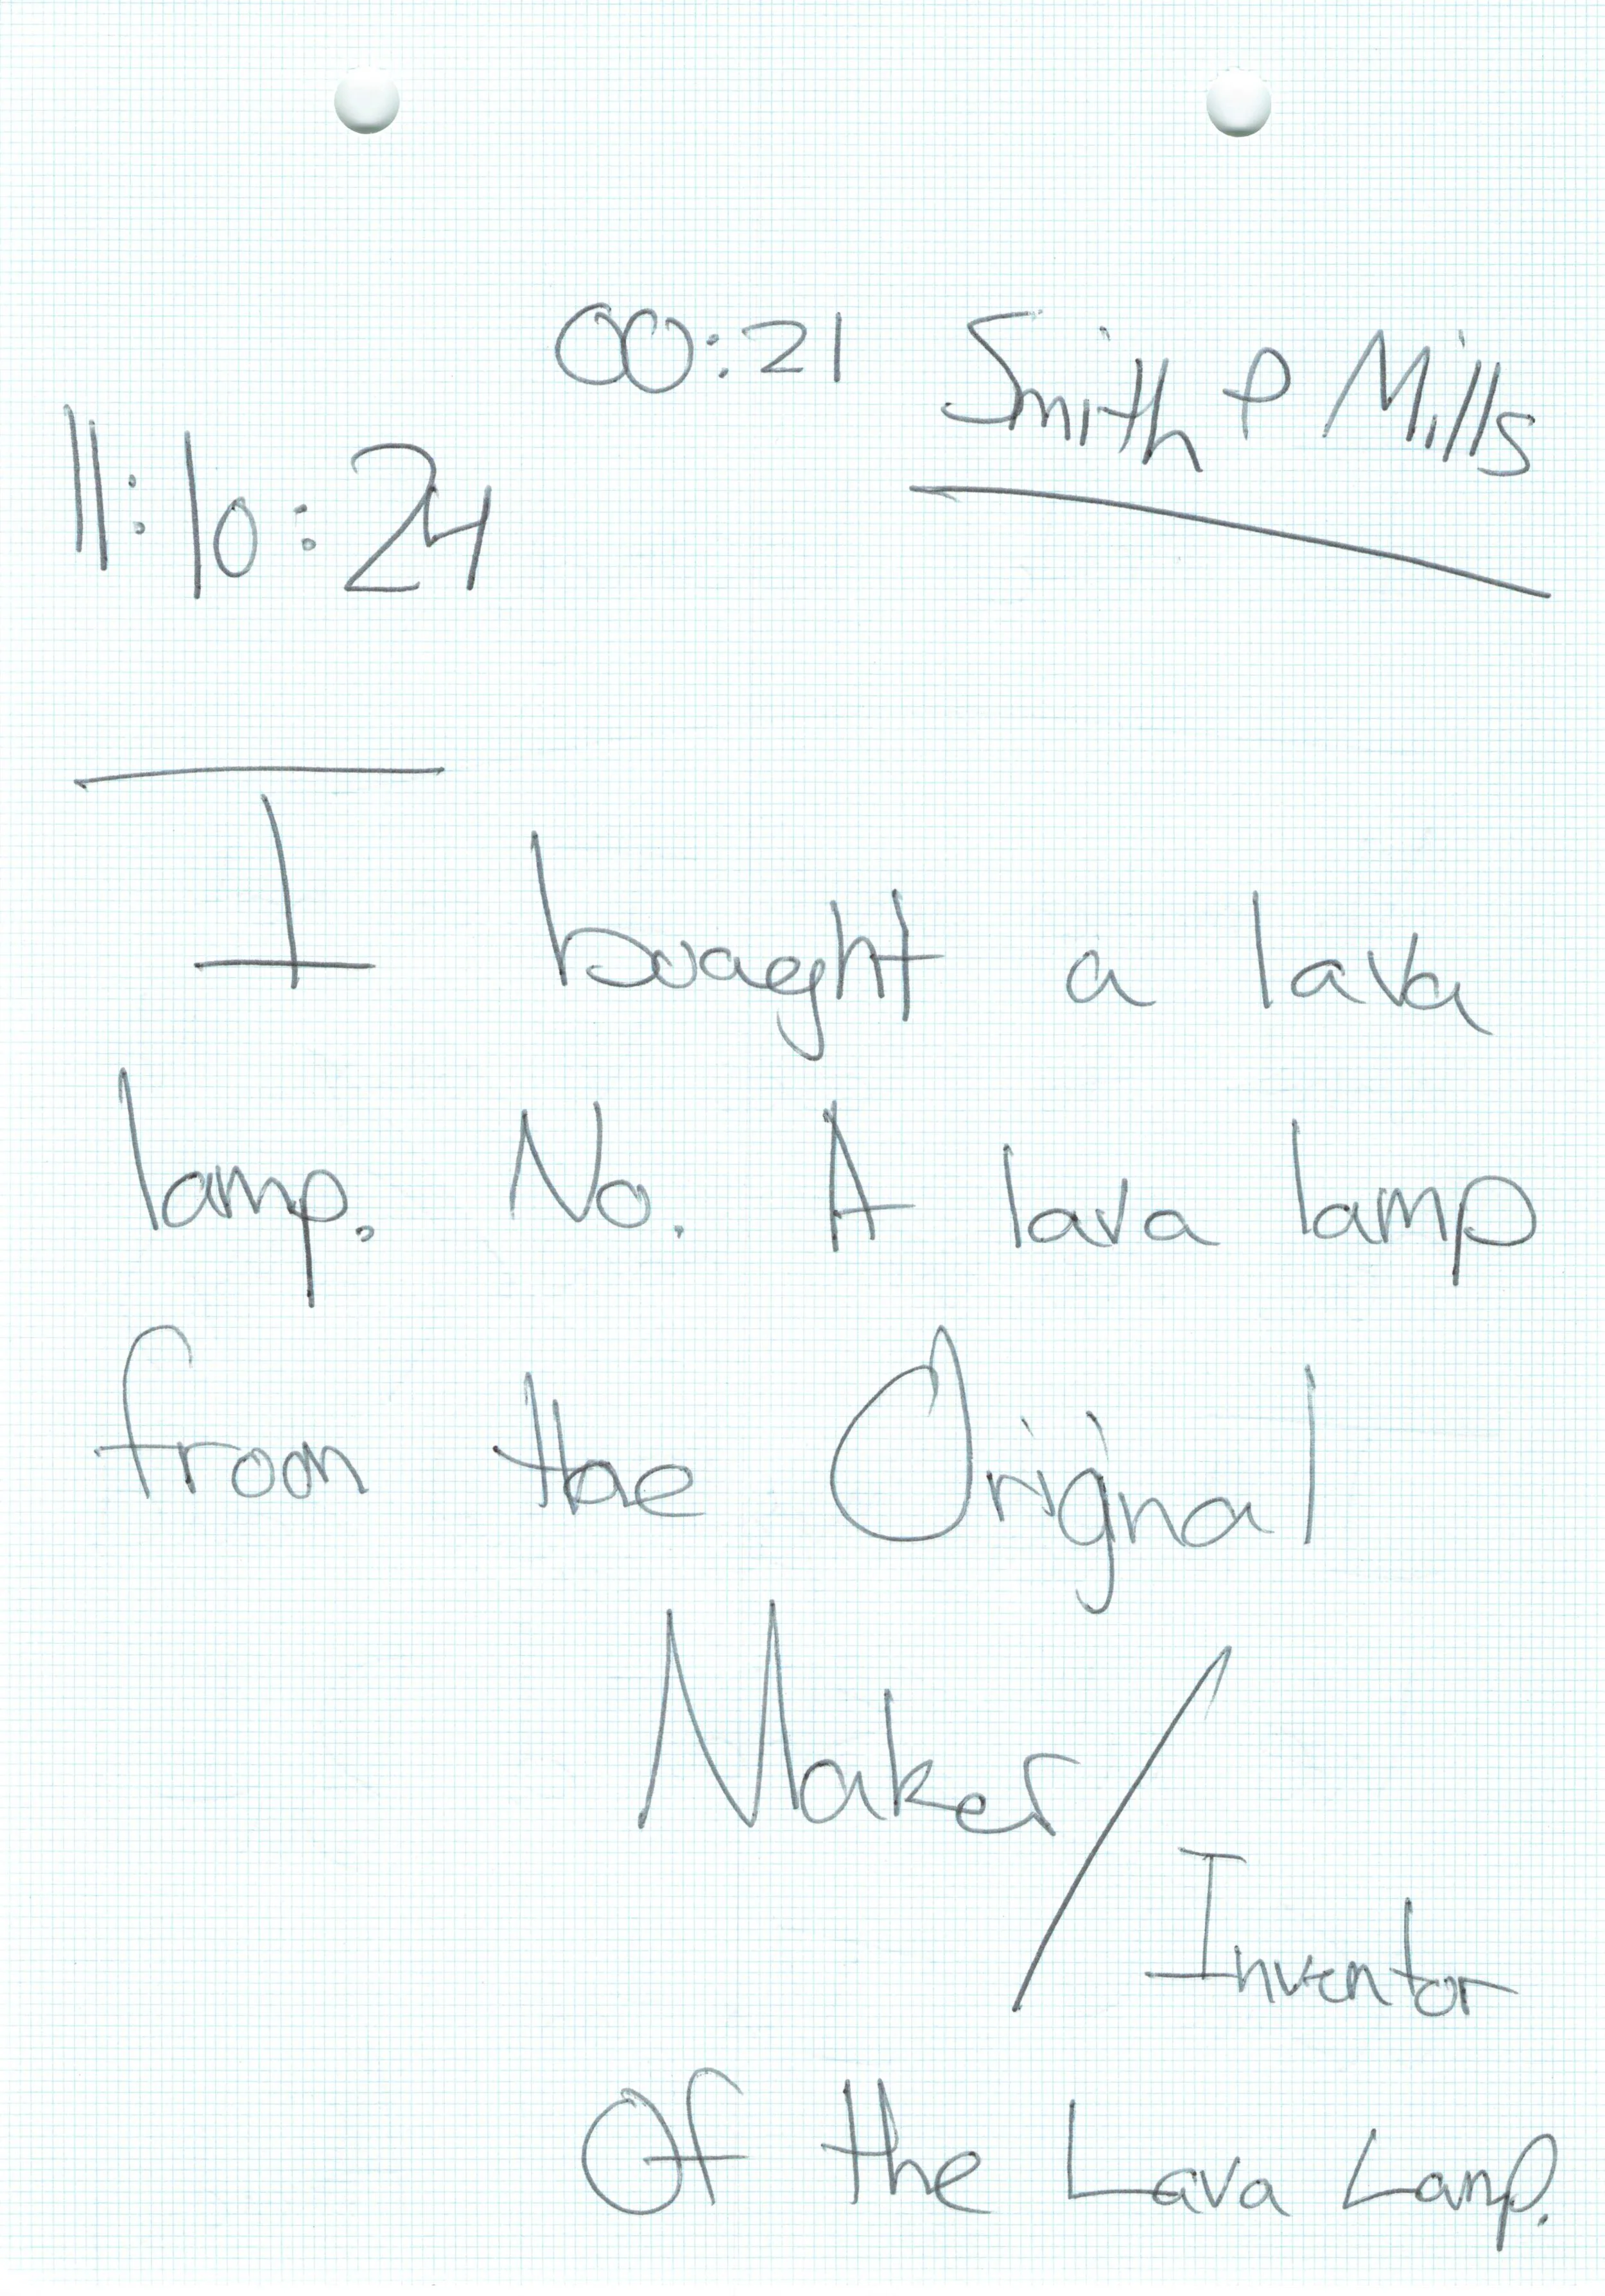 00:21 Smith & Mills
11:10:24
I bouaght a lava
lamp. No. A lava lamp
from the Orignal
Maker/
Inventor
Of the Lava Lamp.